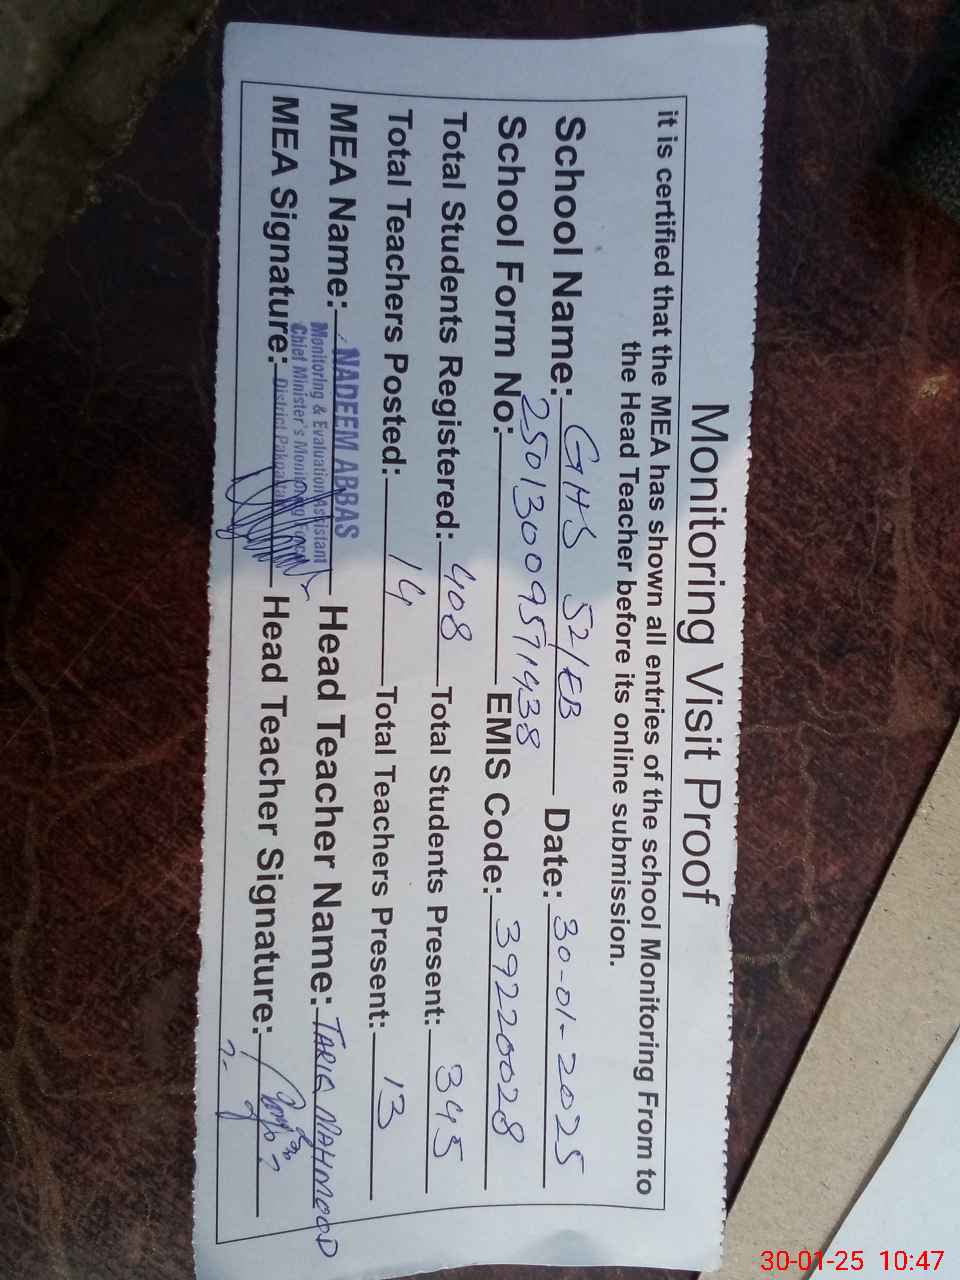 Monitoring Visit Proof
it is certified that the MEA has shown all entries of the school Monitoring From to
the Head Teacher before its online submission.
School Name: GHS 52/EB Date: 30-01-2025
School Form No: 2501300951438 EMIS Code: 39220028
Total Students Registered: 408 Total Students Present: 345
Total Teachers Posted: 14 Total Teachers Present: 13
MEA Name: NADEEM ABBAS Head Teacher Name: TARIQ MAHMOOD
Monitoring & Evaluation Assistant
Chief Minister's Monitoring Force
District Pakpattan
MEA Signature: Head Teacher Signature:
30-01-25 10:47